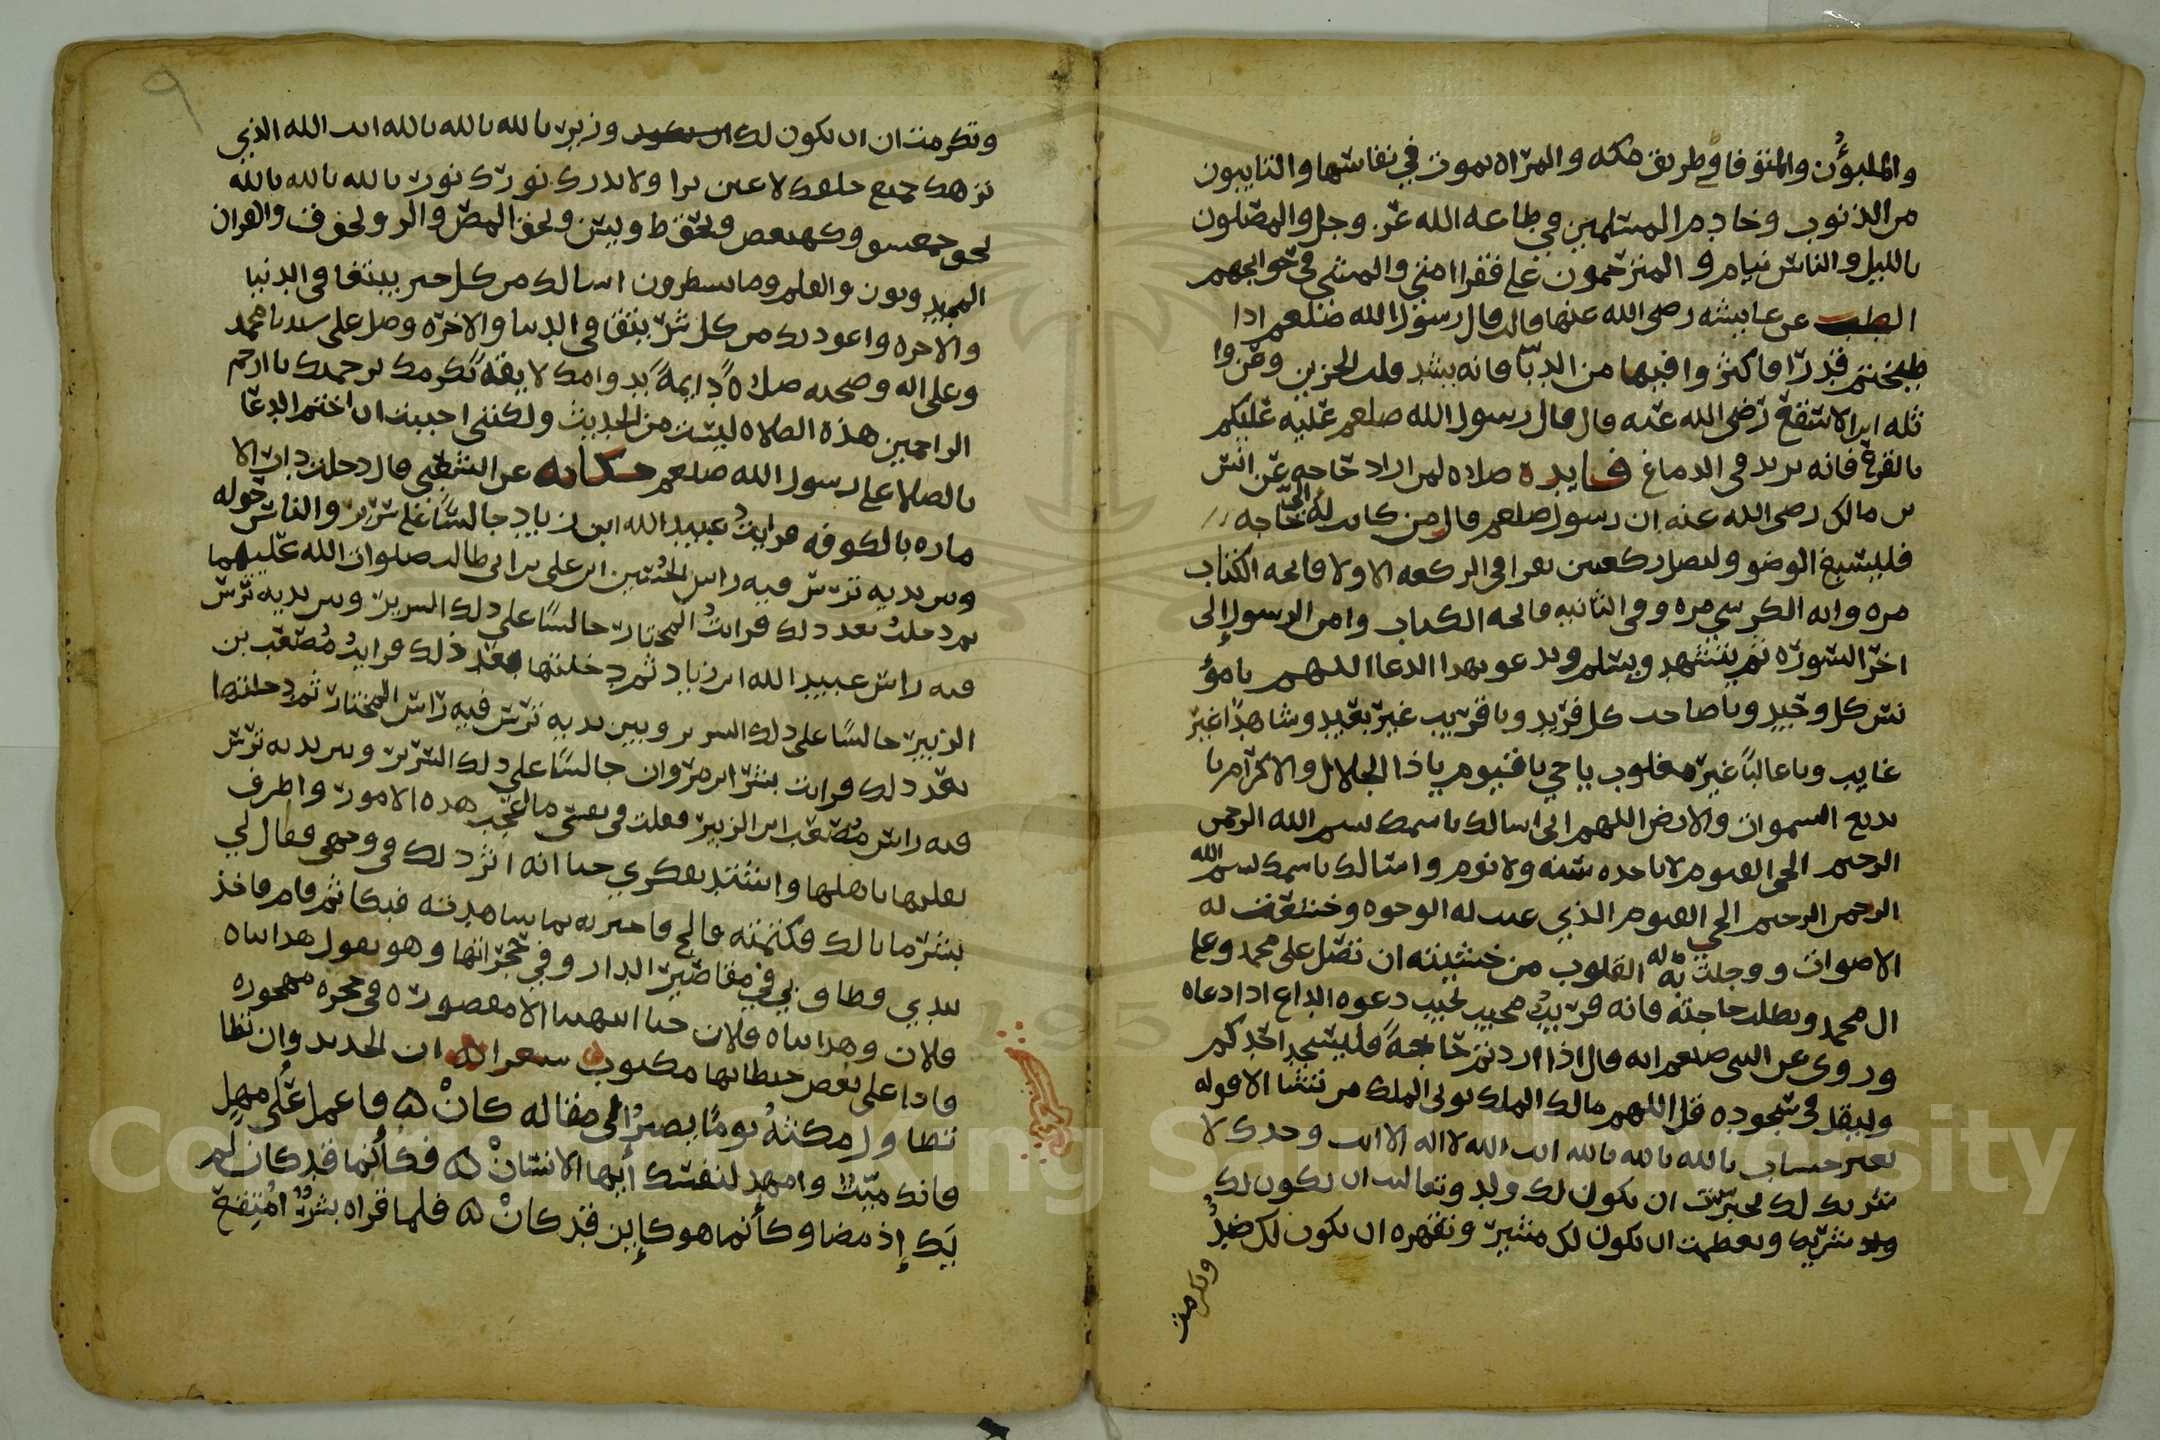 والملبؤن والمتوفا في طريق مكه والمراه تموت في نفاسها والتايبون
من الذنوب وخادم المسلمين في طاعه الله عز وجل والمصلون
بالليل والناس نيام و المترحمون على فقرا امتي والمشي في حوايجهم
الطب عن عايشه رضى الله عنها قالت قال رسول الله صلعم اذا
طبختم قدرا فاكثروا فيها من الدبا فانه يشد قلب الحزين و
ثله ابن الاسقع رضى الله عنه قال قال رسول الله صلعم عليه عليكم
بالقرع فانه يزيد في الدماغ فايده صلاه لمن اراد حاجه عن انس
بن مالك رضى الله عنه ان رسول صلعم قال من كانت له الى حاجه
فليسبغ الوضو وليصل ركعتين يقرا في الركعه الاولا فاتحه الكتاب
مره وايه الكرسي مره وفي الثانيه فاتحه الكتاب وامن الرسول إلى
اخر السوره ثم يتشهد ويسلم ويدعو بهذا الدعا اللهم يا مؤ
نس كل وحيد ويا صاحب كل فريد ويا قريب غير بعيد وشاهدا غير
غايب ويا غالبا غير مغلوب يا حي يا قيوم يا ذا الجلال والاكرام يا
بديع السموات والارض اللهم انى اسالك باسمك بسم الله الرحمن
الرحيم الحى القيوم لا تاخده سنه ولا نوم واسالك باسمك بسم الله
الرحمن الرحيم الحي القيوم الذي عنت له الوجوه وخشعت له
الاصوات ووجلت له القلوب من خشيته ان تصل على محمد وعلى
ال محمد ويطلب حاجته فانه قريب مجيب يجيب دعوه الداع اذا دعاه
وروى عن النبى صلعم انه قال اذا اردتم حاجة فليسجد احدكم
وليقل في سجوده قل اللهم مالك الملك توتي الملك من تشا الا قوله
بغير حساب يا لله يا لله يا لله انت الله لا اله الا انت وحدك لا
شريك لك تجبرت ان يكون لك ولد وتعاليت ان يكون لك
شريك وتعظمت ان يكون لك مشير وتقهره ان يكون لك ضد
وتكرمت
٩
وتكرمت ان ان يكون لك وزير يا لله يا لله يا لله انت الله الذي
نورك نور يا لله يا لله يا لله
بحق حمعسق وكهيعص وبحق ط ويس وبحق المص والر وبحق ق والقران
المجيد ونون والقلم وما يسطرون اسالك من كل خير يبتغا في الدنيا
والاخره واعوذ بك من كل شر يتقا في الدنيا والاخره وصل على سيدنا محمد
وعلى اله وصحبه صلاة دايمة بدوامك لايقة بكرمك برحمتك يا ارحم
الراحمين هذه الصلاه ليست من الحديث ولكنني احببت ان اختم الدعا
بالصلا على رسول الله صلعم حكايه عن الشعبي قال دخلت دار الا
ماره بالكوفه فرايت عبيد الله ابن زياد جالسا على سرير والناس حوله
وبين يديه ترس فيه راس الحسين ابن علي بن ابي طالب صلوات الله عليهما
ثم دخلت بعد ذلك فرايت المختار جالسا على ذلك السرير وبين يديه ترس
فيه راس عبيد الله ابن زياد ثم دخلتها بعد ذلك فرايت مصعب بن
الزبير جالسا على ذلك السرير وبين يديه ترس فيه راس المختار ثم دخلتها
بعد ذلك فرايت بشر ابن مروان جالسا على ذلك السرير وبين يديه ترس
فيه راس مصعب ابن الزبير فقلت في نفسى ما اعجب هذه الامور واطرف
تقلبها باهلها واشتد بفكري حتا انه اثر ذلك في وجهى فقال لي
بشر ما بالك فكتمته فالح فاخبرته بما شاهدته فبكا ثم قام فاخذ
بيدي فطاف بي في مقاصير الدار وفي حجراتها وهو يقول هذا بناه
فلان وهذا بناه فلان حتا انتهينا الا مقصوره في حجره مهجوره
فاذا على بعض حيطانها مكتوب شعر ان الجديد وان تطا
تطاول مكثه يوما يصير الى مقاله كان ۵ فاعمل على مهل
فانك ميت وامهد لنفسك أيها الانسان ۵ فكأنما قد كان لم
يك إذ مضا وكأنما هو كاين قد كان ۵ فلما قراه بشر امتقع